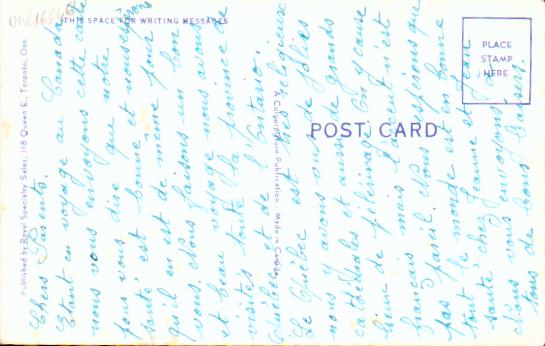 DW16646
THIS SPACE FOR WRITING MESSAGES
PLACE
STAMP
HERE
POST CARD
Published by Royal Specialty Sales, 118 Queen E., Toronto, Ont.
A Colourpicture Publication - Made in Canada
Chers Parents.
Etant en voyage au Canada
nous vous envoyons cette carte
pour vous dire que notre
santé est bonne et nous espérons
qu'il en est de même pour
vous. Nous faisons un bon
et beau voyage nous avons
visités toute la province de
Québec et de l'Ontario.
Le Québec est très religieux
nous y avons vu de jolies
cathédrales et aussi de grands
lieux de pélerinage. On y cause
français mais l'accent n'est
pas pareil. Nous espérons que
tout le monde est en bonne
santé chez Jeanne et Jean
nous vous envoyons
tous de bons baisers.